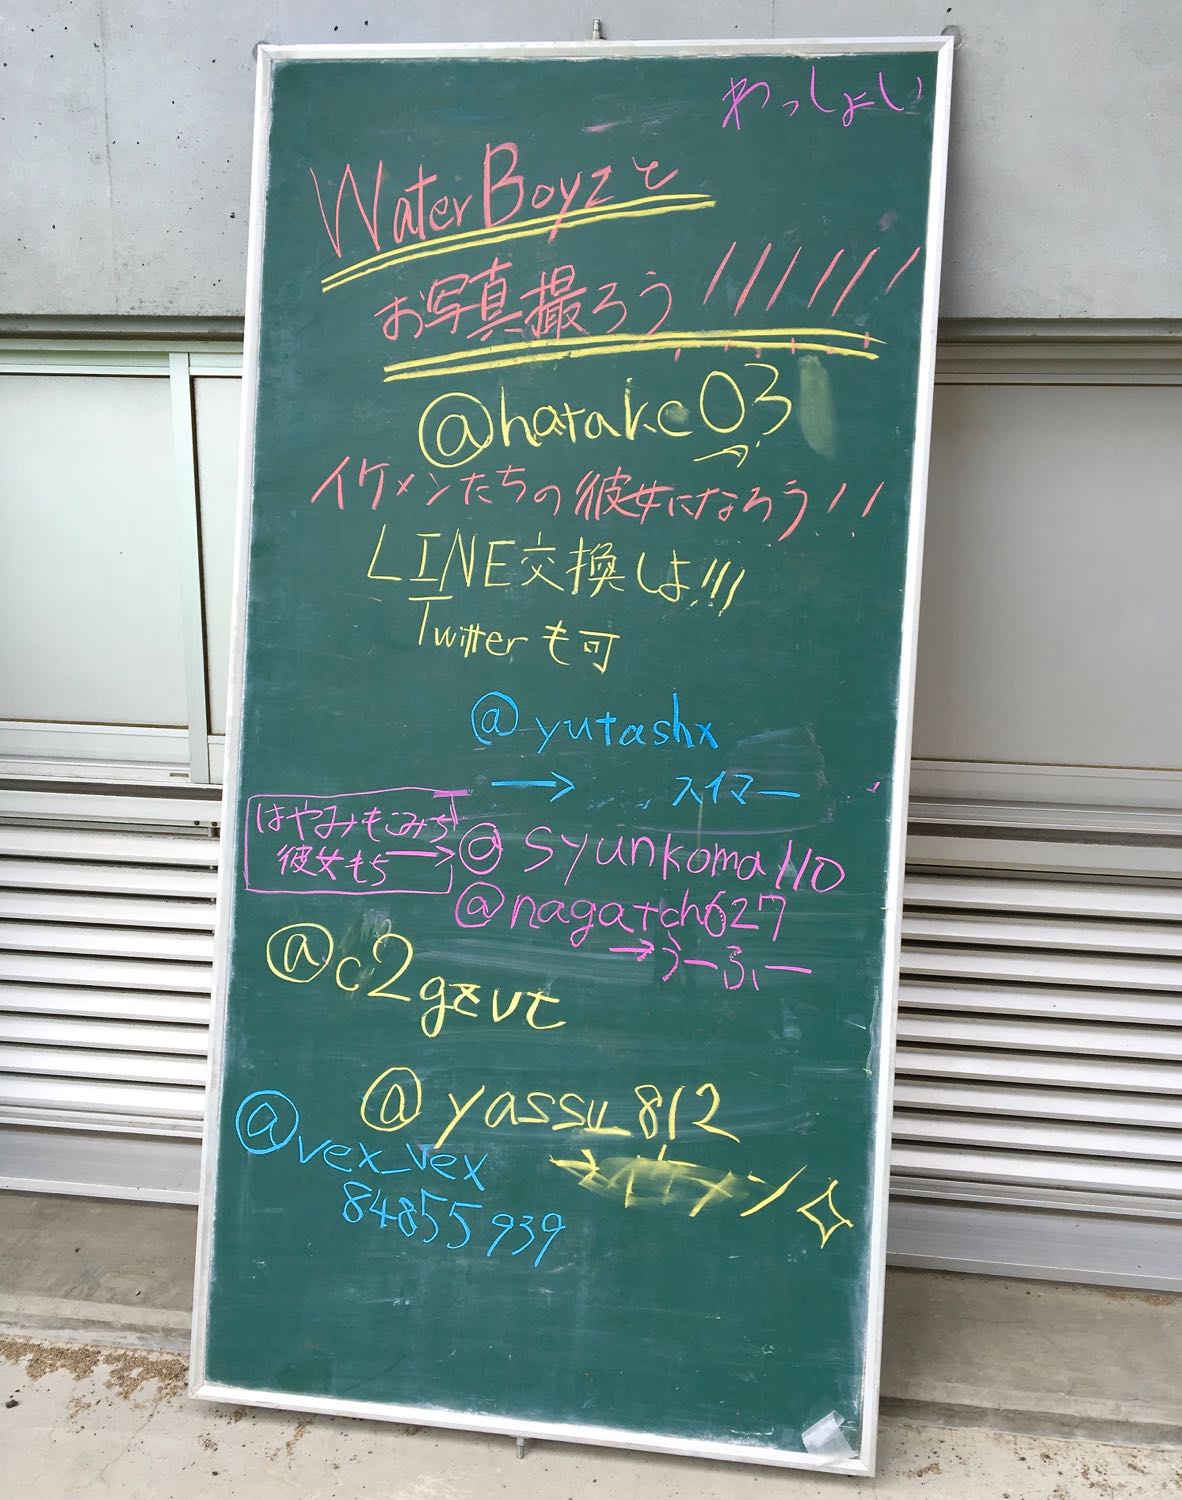 わっしょい
WaterBoyzと
お写真撮ろう!!!!!!
@hatake03
イケメンたちの彼女になろう!!
LINE交換しよ!!!
Twitterも可
@yutashx
→ スイマー
はやみもこみち
彼女もち→@syunkoma110
@nagatch627
→うーふぃー
@c2gzvt
@yassu_812
@vex_vex
84855939